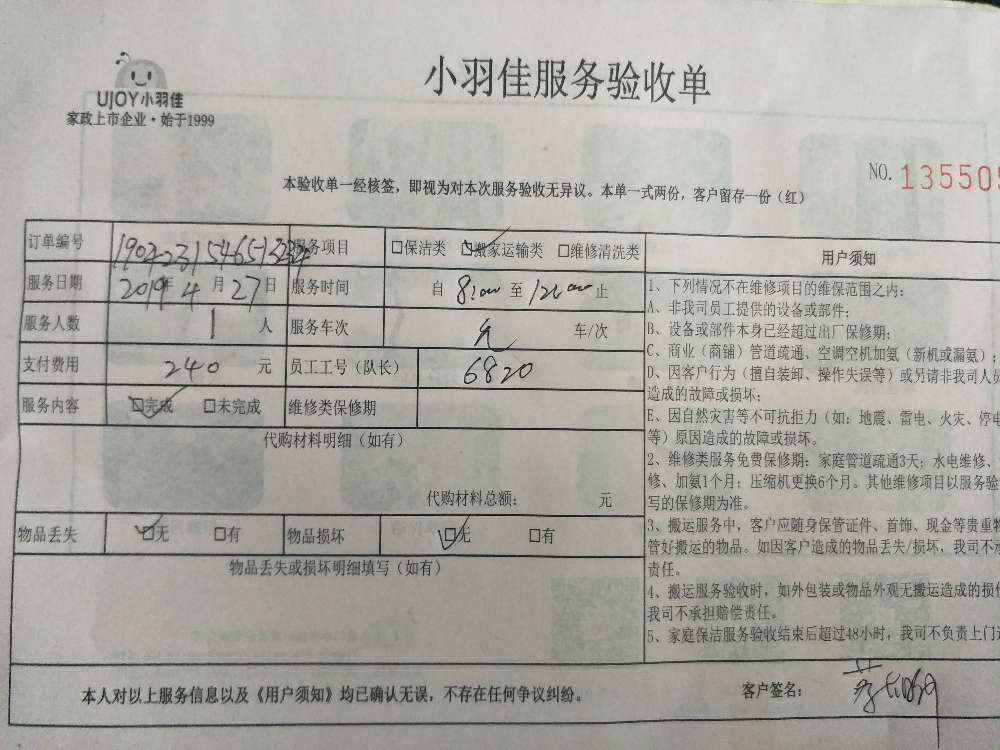 UJOY小羽佳
家政上市企业·始于1999
小羽佳服务验收单
NO. 135505
本验收单一经核签，即视为对本次服务验收无异议。本单一式两份，客户留存一份（红）
订单编号 服务项目 □保洁类 □搬家运输类 □维修清洗类
服务日期 2019年4月27日 服务时间 自 8:00 至 12:00 止
服务人数 1 人 服务车次 无 车/次
支付费用 240 元 员工工号（队长） 6820
服务内容 □完成 □未完成 维修类保修期
代购材料明细（如有）
代购材料总额： 元
物品丢失 □无 □有 物品损坏 □无 □有
物品丢失或损坏明细填写（如有）
用户须知
1、下列情况不在维修项目的维保范围之内：
A、非我司员工提供的设备或部件；
B、设备或部件本身已经超过出厂保修期；
C、商业（商铺）管道疏通、空调空机加氨（新机或漏氨）；
D、因客户行为（擅自装卸、操作失误等）或另请非我司人员
造成的故障或损坏；
E、因自然灾害等不可抗拒力（如：地震、雷电、火灾、停电
等）原因造成的故障或损坏。
2、维修类服务免费保修期：家庭管道疏通3天；水电维修、
修、加氨1个月；压缩机更换6个月。其他维修项目以服务验
写的保修期为准。
3、搬运服务中，客户应随身保管证件、首饰、现金等贵重物
管好搬运的物品。如因客户造成的物品丢失/损坏，我司不承
责任。
4、搬运服务验收时，如外包装或物品外观无搬运造成的损
我司不承担赔偿责任。
5、家庭保洁服务验收结束后超过48小时，我司不负责上门
本人对以上服务信息以及《用户须知》均已确认无误，不存在任何争议纠纷。 客户签名：